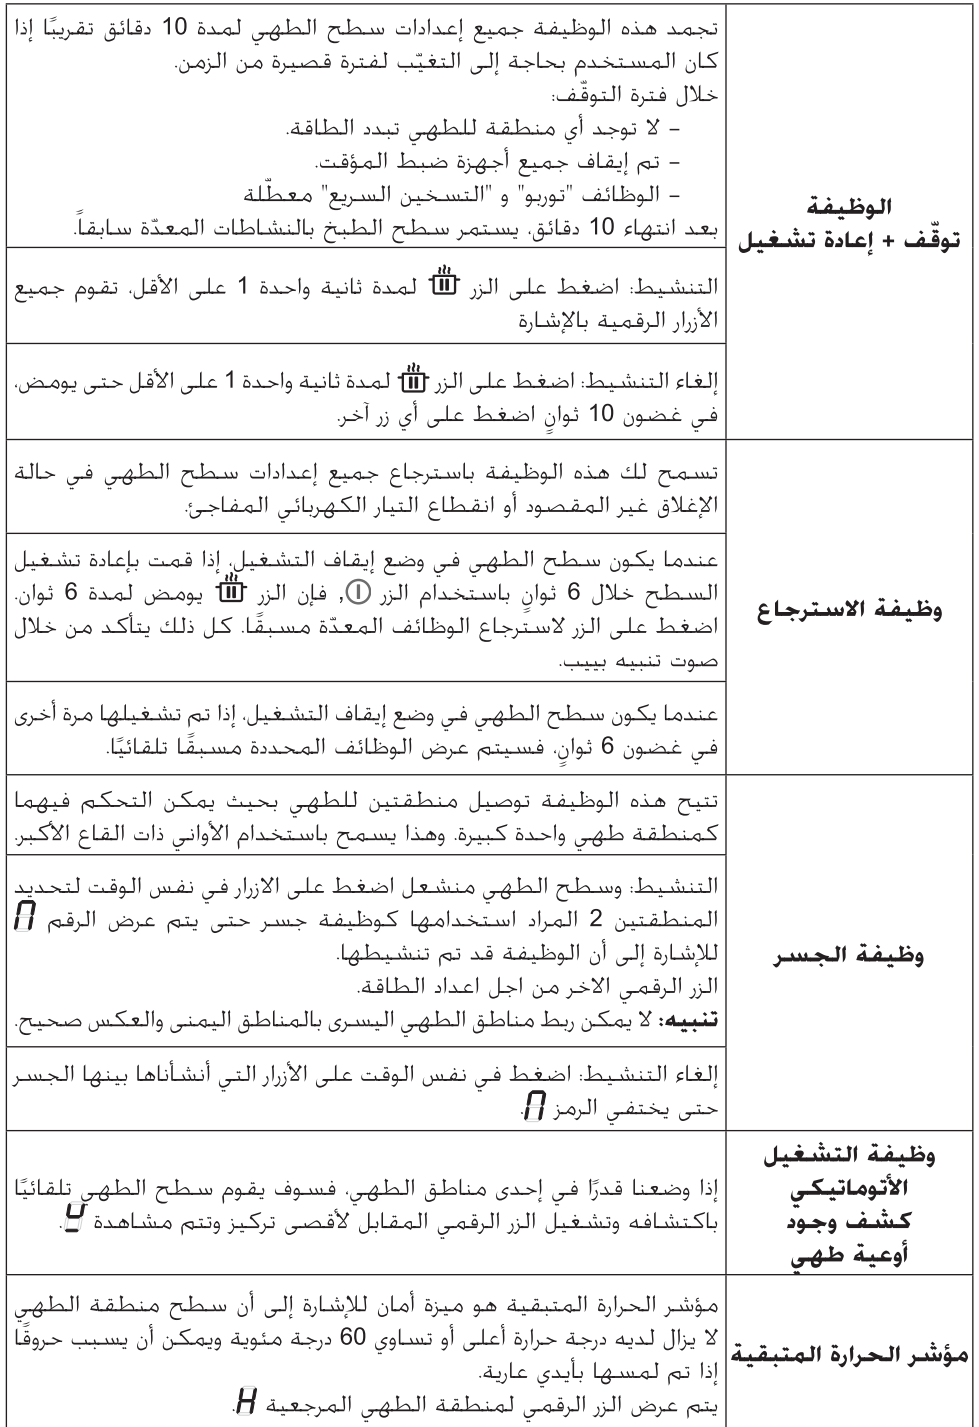 الوظيفة
توقّف + إعادة تشغيل
تجمد هذه الوظيفة جميع إعدادات سطح الطهي لمدة 10 دقائق تقريبًا إذا
كان المستخدم بحاجة إلى التغيّب لفترة قصيرة من الزمن.
خلال فترة التوقّف:
- لا توجد أي منطقة للطهي تبدد الطاقة.
- تم إيقاف جميع أجهزة ضبط المؤقت.
- الوظائف "توربو" و "التسخين السريع" معطّلة
بعد انتهاء 10 دقائق، يستمر سطح الطبخ بالنشاطات المعدّة سابقاً.
التنشيط: اضغط على الزر لمدة ثانية واحدة 1 على الأقل، تقوم جميع
الأزرار الرقمية بالإشارة
إلغاء التنشيط: اضغط على الزر لمدة ثانية واحدة 1 على الأقل حتى يومض،
في غضون 10 ثوانٍ اضغط على أي زر آخر.
وظيفة الاسترجاع
تسمح لك هذه الوظيفة باسترجاع جميع إعدادات سطح الطهي في حالة
الإغلاق غير المقصود أو انقطاع التيار الكهربائي المفاجئ.
عندما يكون سطح الطهي في وضع إيقاف التشغيل، إذا قمت بإعادة تشغيل
السطح خلال 6 ثوانٍ باستخدام الزر , فإن الزر يومض لمدة 6 ثوان.
اضغط على الزر لاسترجاع الوظائف المعدّة مسبقًا. كل ذلك يتأكد من خلال
صوت تنبيه بييب.
عندما يكون سطح الطهي في وضع إيقاف التشغيل، إذا تم تشغيلها مرة أخرى
في غضون 6 ثوانٍ، فسيتم عرض الوظائف المحددة مسبقًا تلقائيًا.
وظيفة الجسر
تتيح هذه الوظيفة توصيل منطقتين للطهي بحيث يمكن التحكم فيهما
كمنطقة طهي واحدة كبيرة. وهذا يسمح باستخدام الأواني ذات القاع الأكبر.
التنشيط: وسطح الطهي منشعل اضغط على الازرار في نفس الوقت لتحديد
المنطقتين 2 المراد استخدامها كوظيفة جسر حتى يتم عرض الرقم
للإشارة إلى أن الوظيفة قد تم تنشيطها.
الزر الرقمي الاخر من اجل اعداد الطاقة.
تنبيه: لا يمكن ربط مناطق الطهي اليسرى بالمناطق اليمنى والعكس صحيح.
إلغاء التنشيط: اضغط في نفس الوقت على الأزرار التي أنشأناها بينها الجسر
حتى يختفي الرمز .
وظيفة التشغيل
الأتوماتيكي
كشف وجود
أوعية طهي
إذا وضعنا قدرًا في إحدى مناطق الطهي، فسوف يقوم سطح الطهي تلقائيًا
باكتشافه وتشغيل الزر الرقمي المقابل لأقصى تركيز وتتم مشاهدة .
مؤشر الحرارة المتبقية
مؤشر الحرارة المتبقية هو ميزة أمان للإشارة إلى أن سطح منطقة الطهي
لا يزال لديه درجة حرارة أعلى أو تساوي 60 درجة مئوية ويمكن أن يسبب حروقًا
إذا تم لمسها بأيدي عارية.
يتم عرض الزر الرقمي لمنطقة الطهي المرجعية H.